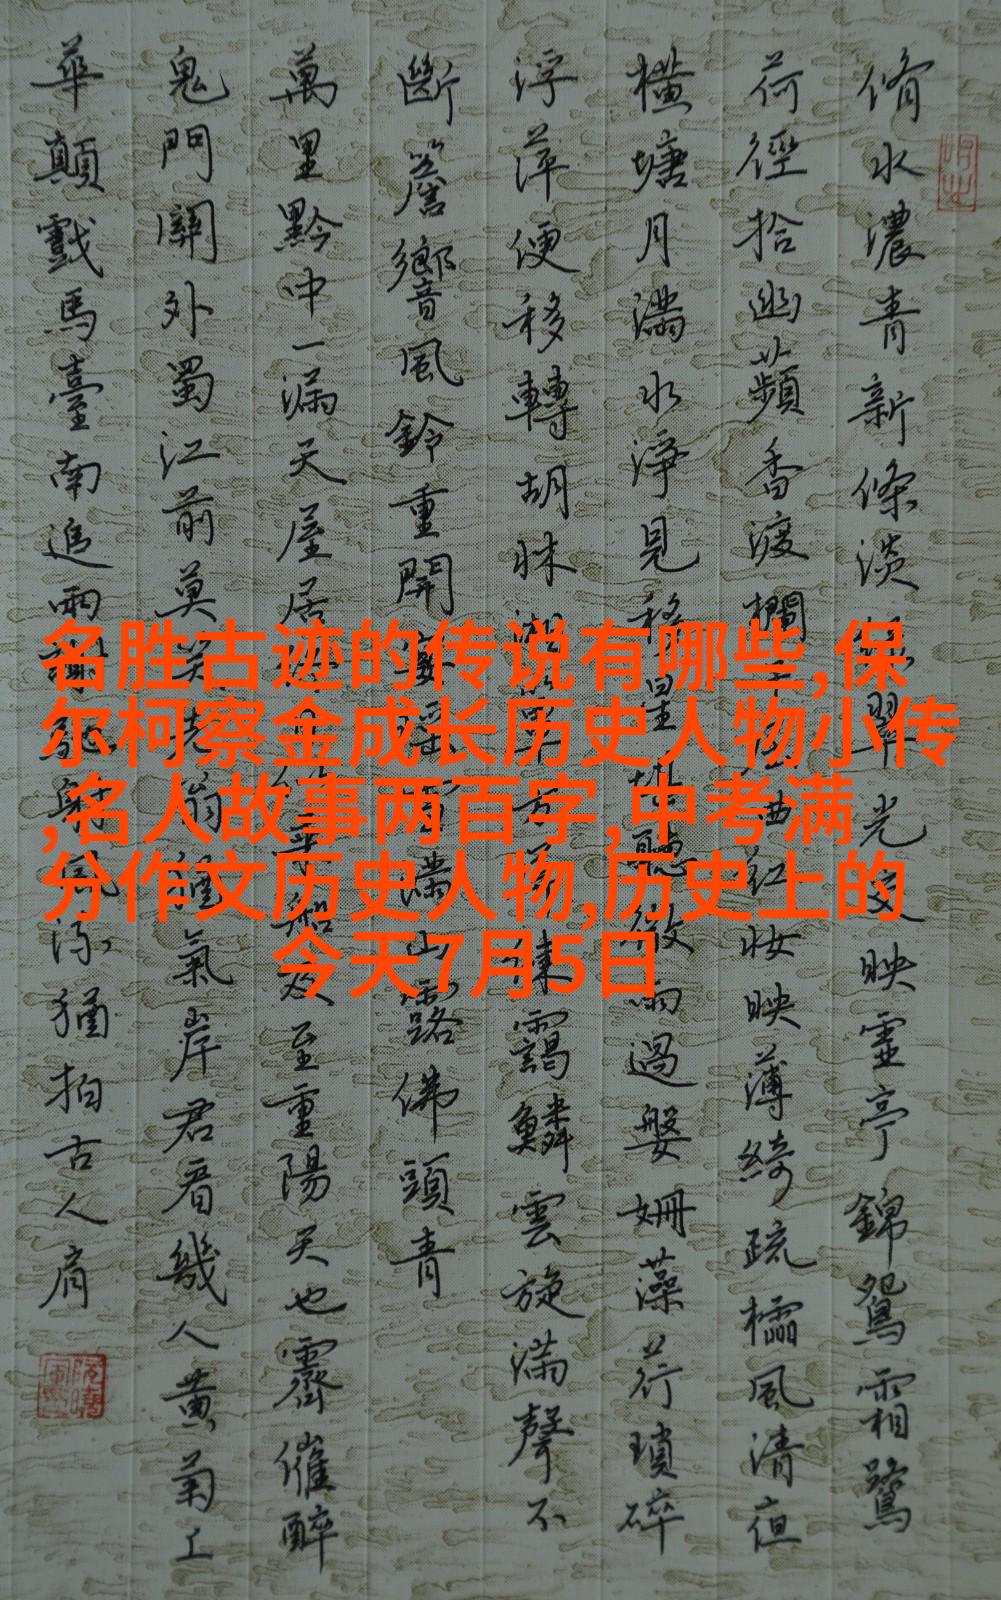 脩水濃青新條淡光交映靈亭錦鴛霜鷺
荷徑拾幽蘋香渡欄曲紅妝映薄綺疏櫺風清但
橫塘月滿水淨見移星聽微雨過媻姍藻荇瑣碎
浮萍便移轉胡牀湖方靄鱗雲旋滿聲不
斷簷響風鈴重開露佛頭青
萬里黔中一漏天屋居及至重陽天也霽催醉
鬼門關外蜀江前莫笑翁氣岸君看幾人黃菊上
華顛戲馬臺南追兩流猶拍古人肩
名胜古迹的传说有哪些,保
尔柯察金成长历史人物小传
,名人故事两百字,中考满
分作文历史人物,历史上的
今天7月5日